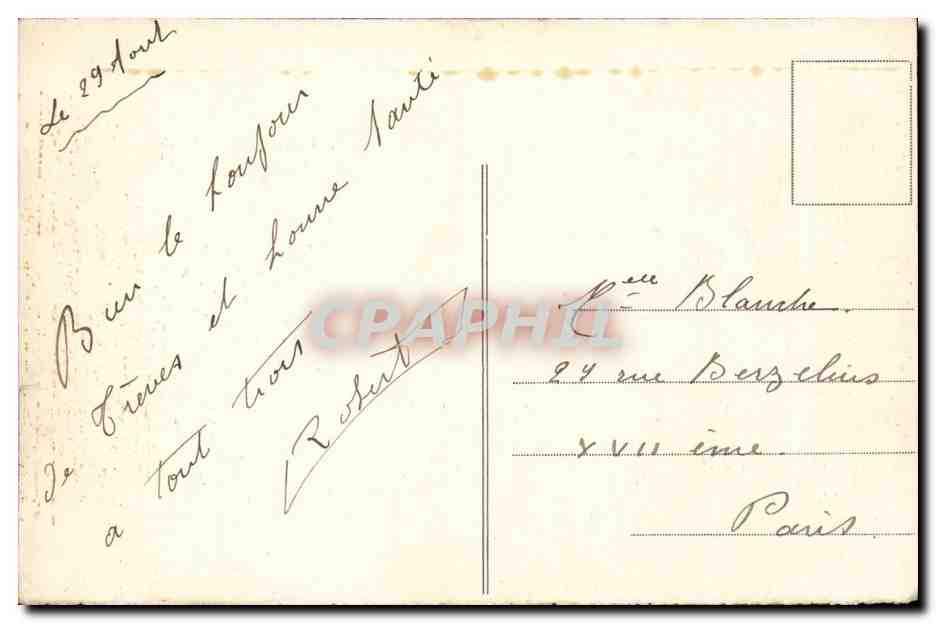 Le 29 Aout
Bien le bonjour
de Trèves et bonne santé
a tout trois
Robert
CPAPHIL
Melle Blanche.
29 rue Berzelius
XVII ème.
Paris.